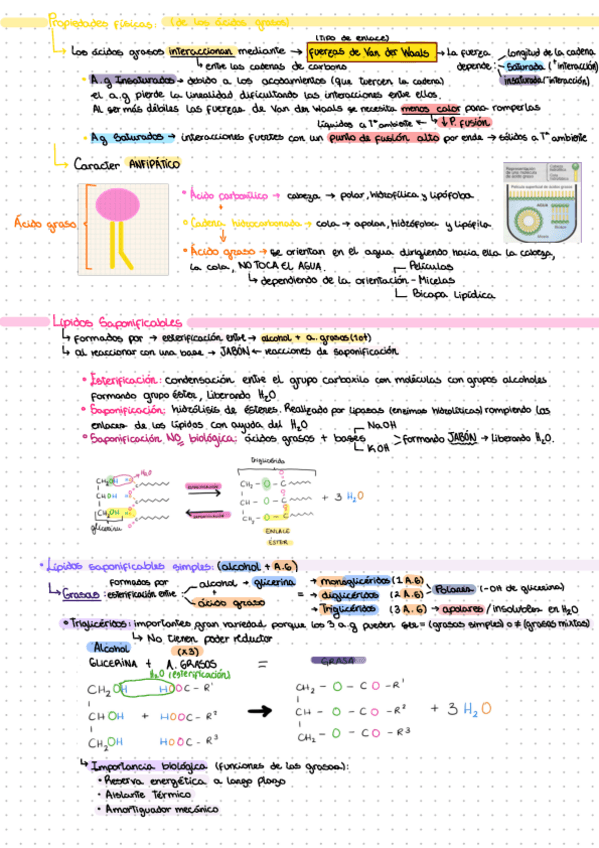 Propiedades físicas: (de los ácidos grasos)
(Tipo de enlace)
Los ácidos grasos interaccionan mediante → fuerzas de Van der Waals → La fuerza depende:
longitud de la cadena
Saturada (↑interacción)
insaturada (↑interacción)
↳ entre las cadenas de carbono
• A.g Insaturados → debido a los acodamientos (que tuercen la cadena)
el a.g pierde la linealidad dificultando las interacciones entre ellos.
Al ser más débiles las fuerzas de Van der Waals se necesita menos calor para romperlas
líquidos a Tª ambiente ← ↳ ↓ P. fusión
• Ag Saturados → interacciones fuertes con un punto de fusión alto por ende → sólidos a Tª ambiente
Caracter ANFIPÁTICO
Ácido graso
• Ácido carboxílico → cabeza → polar, hidrofílica y lipófoba
• Cadena hidrocarbonada → cola → apolar, hidrófoba y lipófila
• Ácido graso → se orientan en el agua dirigiendo hacia ella la cabeza,
la cola, NO TOCA EL AGUA.
↳ dependiendo de la orientación
Películas
- Micelas
Bicapa lipídica
AGUA
Lípidos Saponificables
↳ formados por → esterificación entre → alcohol + a. grasos (1 o +)
↳ al reaccionar con una base → JABÓN ← reacciones de saponificación
• Esterificación: condensación entre el grupo carboxilo con moléculas con grupos alcoholes
formando grupo éster, liberando H2O
• Saponificación: hidrólisis de ésteres. Realizado por lipasas (enzimas hidrolíticas) rompiendo los
enlaces de los lípidos con ayuda del H2O
• Saponificación NO biológica: ácidos grasos + bases
NaOH
KOH
> formando JABÓN → liberando H2O.
Triglicérido
H2O
CH2OH
CHOH
CH2OH
glicerina
CH2 - O - C
CH - O - C
CH2 - O - C
+ 3 H2O
ENLACE
ÉSTER
• Lípidos saponificables simples: (alcohol + A.G)
↳ Grasas: formados por esterificación entre
alcohol → glicerina
+
ácido graso
= → monoglicéridos (1 A.G)
→ diglicéridos (2 A.G)
Polares (-OH de glicerina)
→ Triglicéridos (3 A.G) → apolares / insolubles en H2O
• Triglicéridos: importantes, gran variedad porque los 3 a.g pueden ser = (grasas simples) o ≠ (grasas mixtas)
↳ No tienen poder reductor
Alcohol
(x3)
GLICERINA + A. GRASOS = GRASA
H2O (esterificación)
CH2OH HOOC - R1
CHOH + HOOC - R2
CH2OH HOOC - R3
→
CH2 - O - CO - R1
CH - O - CO - R2
CH2 - O - CO - R3
+ 3 H2O
↳ Importancia biológica (funciones de las grasas):
• Reserva energética a largo plazo
• Aislante Térmico
• Amortiguador mecánico